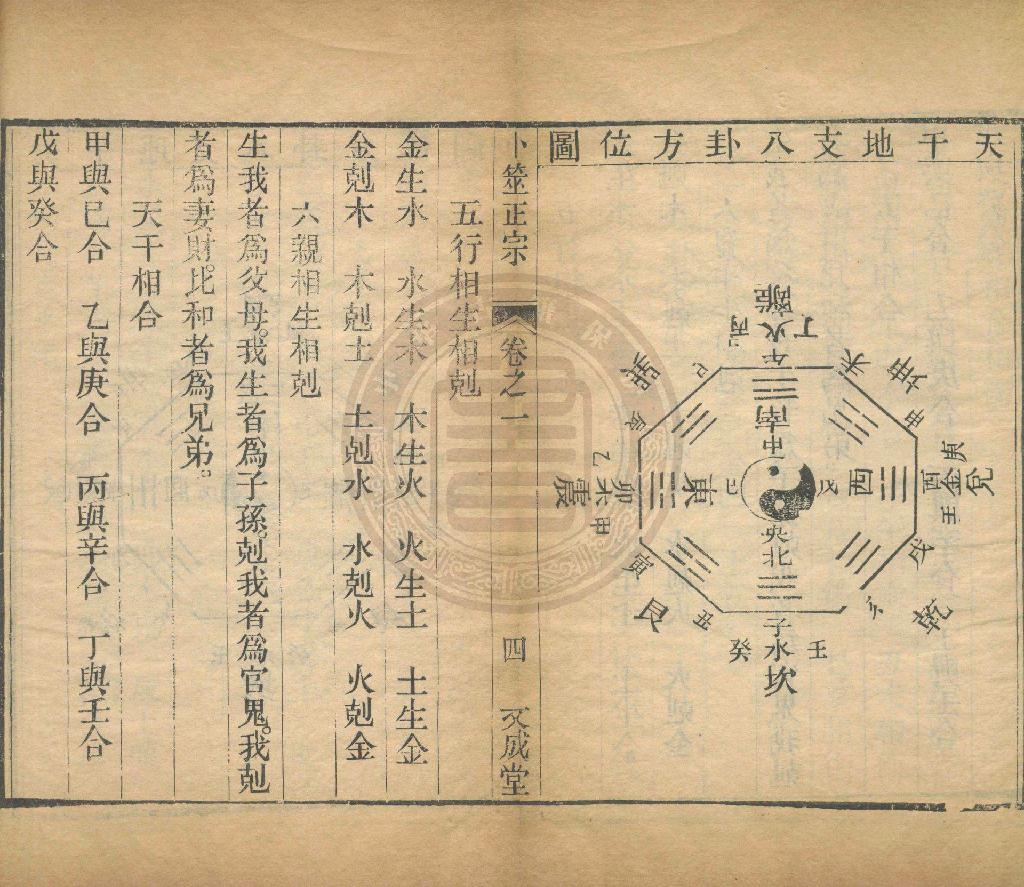 天干地支八卦方位圖
離
火
午
丁
丙
未
坤
申
庚
酉金兌
戌
乾
亥
壬
子水坎
癸
丑
艮
寅
甲
卯木震
乙
辰
巳
南
中
西
戊
東
央
北
卜筮正宗 卷之一 四 文成堂
五行相生相剋
金生水 水生木 木生火 火生土 土生金
金剋木 木剋土 土剋水 水剋火 火剋金
六親相生相剋
生我者爲父母。我生者爲子孫。剋我者爲官鬼。我剋
者爲妻財。比和者爲兄弟。
天干相合
甲與己合 乙與庚合 丙與辛合 丁與壬合
戊與癸合